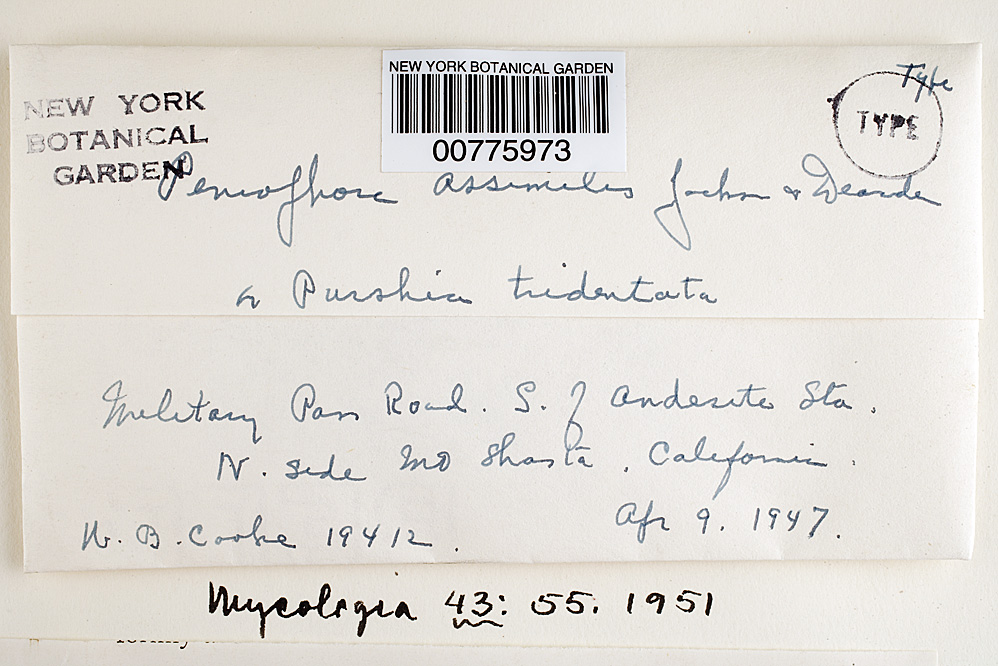 NEW YORK BOTANICAL GARDEN
00775973
Type
TYPE
NEW YORK
BOTANICAL
GARDEN
Peniophora assimilis Jackson & Dearden
on Purshia tridentata
Military Pass Road. S. of Andesite Sta.
N. side Mt Shasta, California.
Apr 9. 1947.
W. B. Cooke 19412.
Mycologia 43: 55. 1951